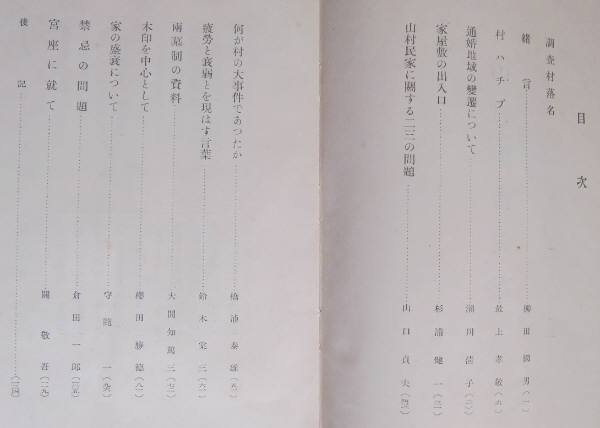 目次
調査村落名
緒言 柳田國男(一)
村ハチブ 最上孝敬(六)
通婚地域の變遷について 瀬川清子
家屋敷の出入口 杉浦健一
山村民家に關する二三の問題 山口貞夫
何が村の大事件であつたか 橋浦泰雄
疲勞と衰弱とを現はす言葉 鈴木棠三
兩墓制の資料 大間知篤三
木印を中心として 櫻田勝德
家の盛衰について 守隨一
禁忌の問題 倉田一郎
宮座に就て 關敬吾
後記